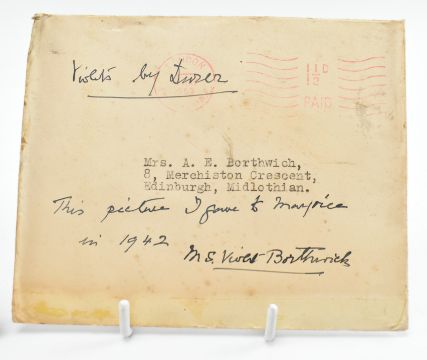 Violets by Durer
LONDON
1½D
PAID
Mrs. A. E. Borthwich,
8, Merchiston Crescent,
Edinburgh, Midlothian.
This picture I gave to Marjorie
in 1942
M S. Violet Borthwick